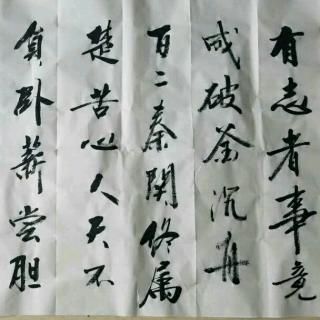 有志者事竟
成破釜沉舟
百二秦関终属
楚苦心人天不
負卧薪尝胆